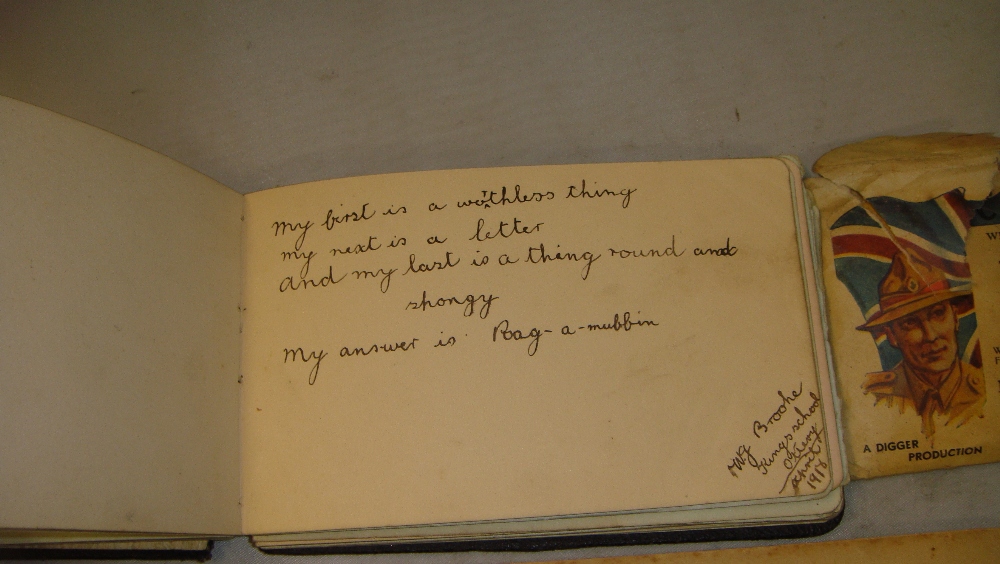 my first is a worthless thing
my next is a letter
and my last is a thing round and
shongy
My answer is Rag-a-mubbin
Brooke
Kings school
Ottery
1918
A DIGGER
PRODUCTION